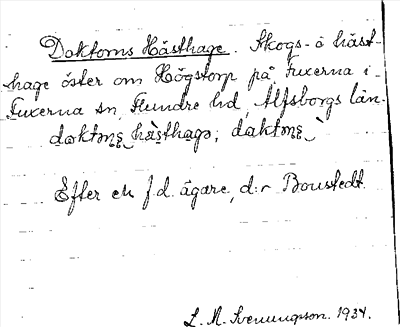 Doktorns Hästhage. Skogs- o häst-
hage öster om Högstorp på Fuxerna i
Fuxerna sn, Flundre hd, Älfsborgs län.
hästhagə;
Efter en f.d. ägare, d:r Boustedt.
L. M. Svenungson. 1934.